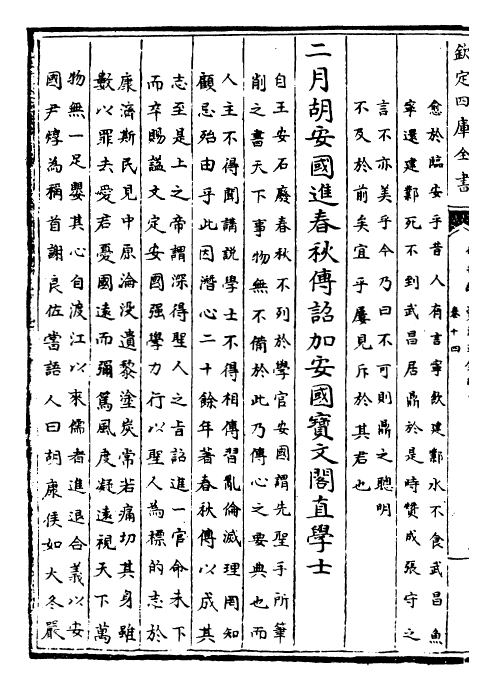 欽定四庫全書
卷十四
愈於臨安乎昔人有言寧飲建鄴水不食武昌魚
寧還建鄴死不到武昌居鼎於是時贊成張守之
言不亦美乎今乃曰不可則鼎之聰明
不及於前矣宜乎屢見斥於其君也
二月胡安國進春秋傳詔加安國寶文閣直學士
自王安石廢春秋不列於學官安國謂先聖手所筆
削之書天下事物無不備於此乃傳心之要典也而
人主不得聞講說學士不得相傳習亂倫滅理罔知
顧忌殆由乎此因潛心二十餘年著春秋傳以成其
志至是上之帝謂深得聖人之旨詔進一官命未下
而卒賜諡文定安國强學力行以聖人為標的志於
康濟斯民見中原淪没遺黎塗炭常若痛切其身雖
數以罪去愛君憂國遠而彌篤風度凝遠視天下萬
物無一足嬰其心自渡江以來儒者進退合義以安
國尹焞為稱首謝良佐嘗語人曰胡康侯如大冬嚴